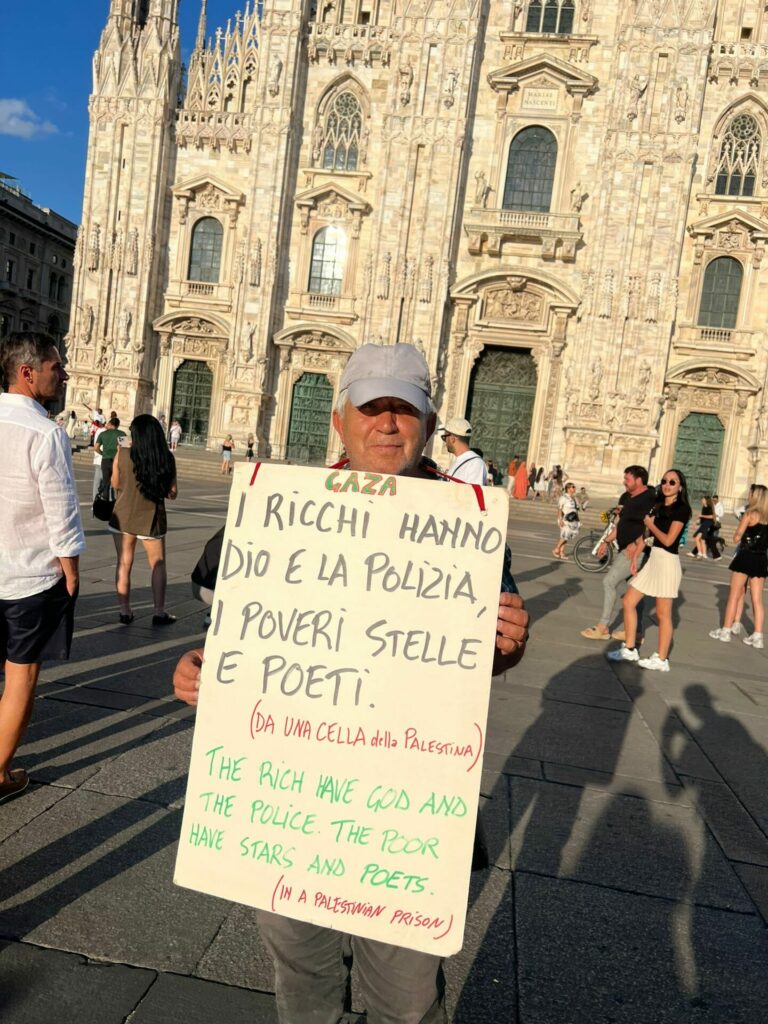 MARIAE
NASCENTI
GAZA
I RICCHI HANNO
DIO E LA POLIZIA,
I POVERI STELLE
E POETI.
(DA UNA CELLA della PALESTINA)
THE RICH HAVE GOD AND
THE POLICE. THE POOR
HAVE STARS AND POETS.
(IN A PALESTINIAN PRISON)